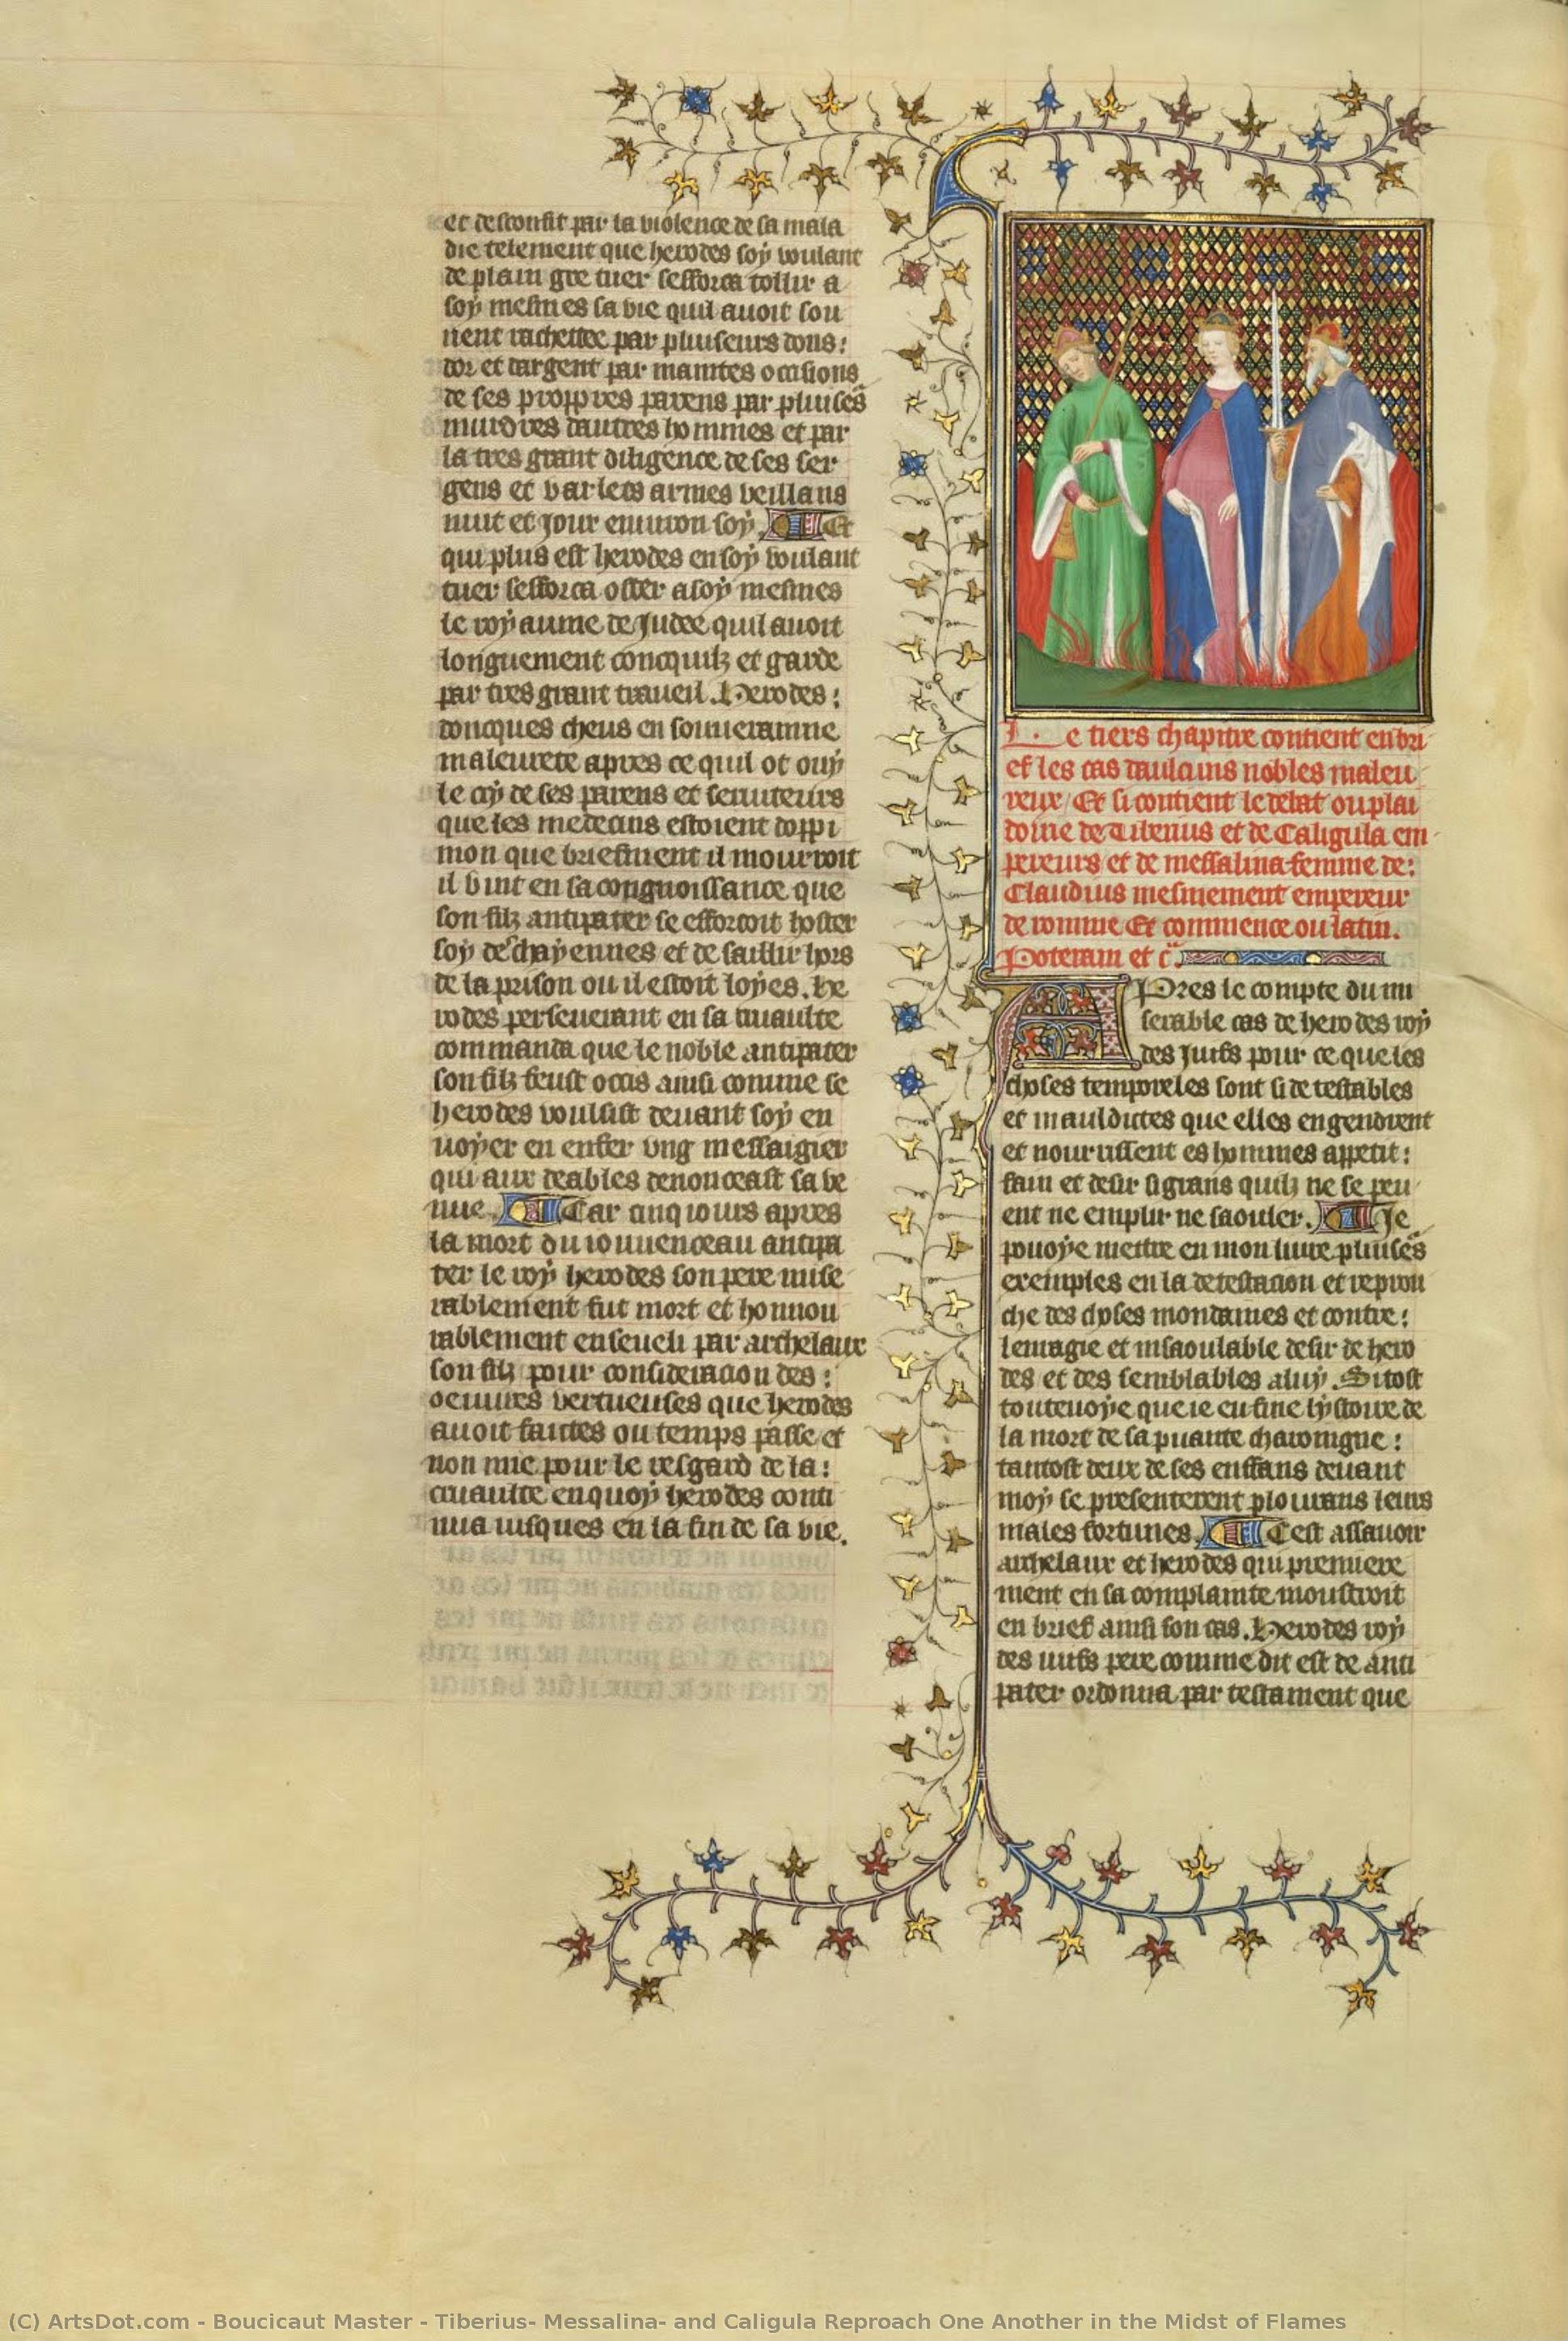 et desconfit par la violence de sa mala
die telement que herodes soy voulant
de plain gre tuer sefforca tollir a
soy mesmes sa vie quil auoit sou
uent rachettee par pluiseurs dons:
dor et dargent par maintes occasions
de ses proppres parens par pluises̃
murdres dautres hommes et par
la tres grant diligence de ses ser
gens et varlets armes veillans
nuit et jour enuiron soy. Et
qui plus est herodes en soy voulant
tuer sefforca oster a soy mesmes
le royaume de Judee quil auoit
longuement concquilz et garde
par tres grant traueil. Herodes:
doncques cheus en souuerainne
maleurete apres ce quil ot ouy
le cry de ses parens et seruiteurs
que les medecins estoient doppi
nion que briefment il mourroit
il vint en sa congnoissance que
son filz antipater se efforcoit hoster
soy des chayennes et de saillir hors
de la prison ou il estoit loyes. he
rodes perseuerant en sa cruaulte
commanda que le noble antipater
son filz feust occis ainsi comme se
herodes voulsist deuant soy en
uoyer en enfer vng messaigier
qui aux deables denonceast sa ve
nue. Car cinq iours apres
la mort du iouuenceau antipa
ter le roy herodes son pere mise
rablement fut mort et honnou
rablement enseueli par archelaux
son filz pour consideracion des:
oeuures vertueuses que herodes
auoit faictes ou temps passe et
non mie pour le resgard de la:
cruaulte en quoy herodes conti
nua iusques en la fin de sa vie.
Le tiers chapitre contient en bri
ef les cas daulcuns nobles maleu
reux Et si contient le debat ou plai
doirie de Tiberius et de Caligula em
pereurs et de messalina femme de:
Claudius mesmement empereur
de romme Et commence ou latin.
Poteram et c̃.
APres le compte du mi
serable cas de herodes roy
des Juifs pour ce que les
choses temporeles sont si detestables
et mauldictes que elles engendrent
et nourrissent es hommes appetit:
fain et desir si grans quilz ne se peu
ent ne emplir ne saouler. Je
pouoye mettre en mon liure pluises̃
exemples en la detestacion et reprou
che des choses mondaines et contre:
lenragie et insaoulable desir de hero
des et des semblables a luy. Si tost
touteuoye que ie eu fine lystoire de
la mort de sa puante charoingne:
tantost deux de ses enffans deuant
moy se presenterent plourans leurs
males fortunes. Cest assauoir
archelaux et herodes qui premiere
ment en sa complainte moustroit
en brief ainsi son cas. Herodes roy
des iuifs pere comme dit est de anti
pater ordonna par testament que
(C) ArtsDot.com - Boucicaut Master - Tiberius- Messalina- and Caligula Reproach One Another in the Midst of Flames